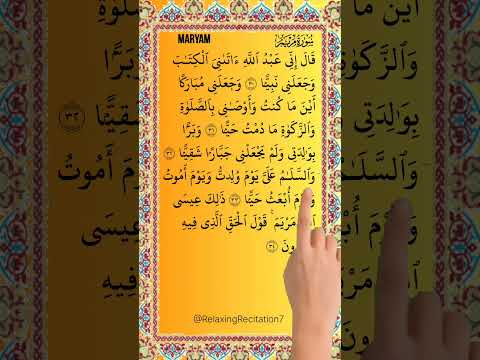 MARYAM
سُورَةُ مَرْيَمَ
قَالَ إِنِّى عَبْدُ ٱللَّهِ ءَاتَىٰنِىَ ٱلْكِتَٰبَ
وَجَعَلَنِى نَبِيًّا ٣٠ وَجَعَلَنِى مُبَارَكًا
أَيْنَ مَا كُنتُ وَأَوْصَٰنِى بِٱلصَّلَوٰةِ
وَٱلزَّكَوٰةِ مَا دُمْتُ حَيًّا ٣١ وَبَرًّۢا
بِوَٰلِدَتِى وَلَمْ يَجْعَلْنِى جَبَّارًا شَقِيًّا ٣٢
وَٱلسَّلَٰمُ عَلَىَّ يَوْمَ وُلِدتُّ وَيَوْمَ أَمُوتُ
أُبْعَثُ حَيًّا ٣٣ ذَٰلِكَ عِيسَى
مَرْيَمَ ۚ قَوْلَ ٱلْحَقِّ ٱلَّذِى فِيهِ
٣٤
@RelaxingRecitation7